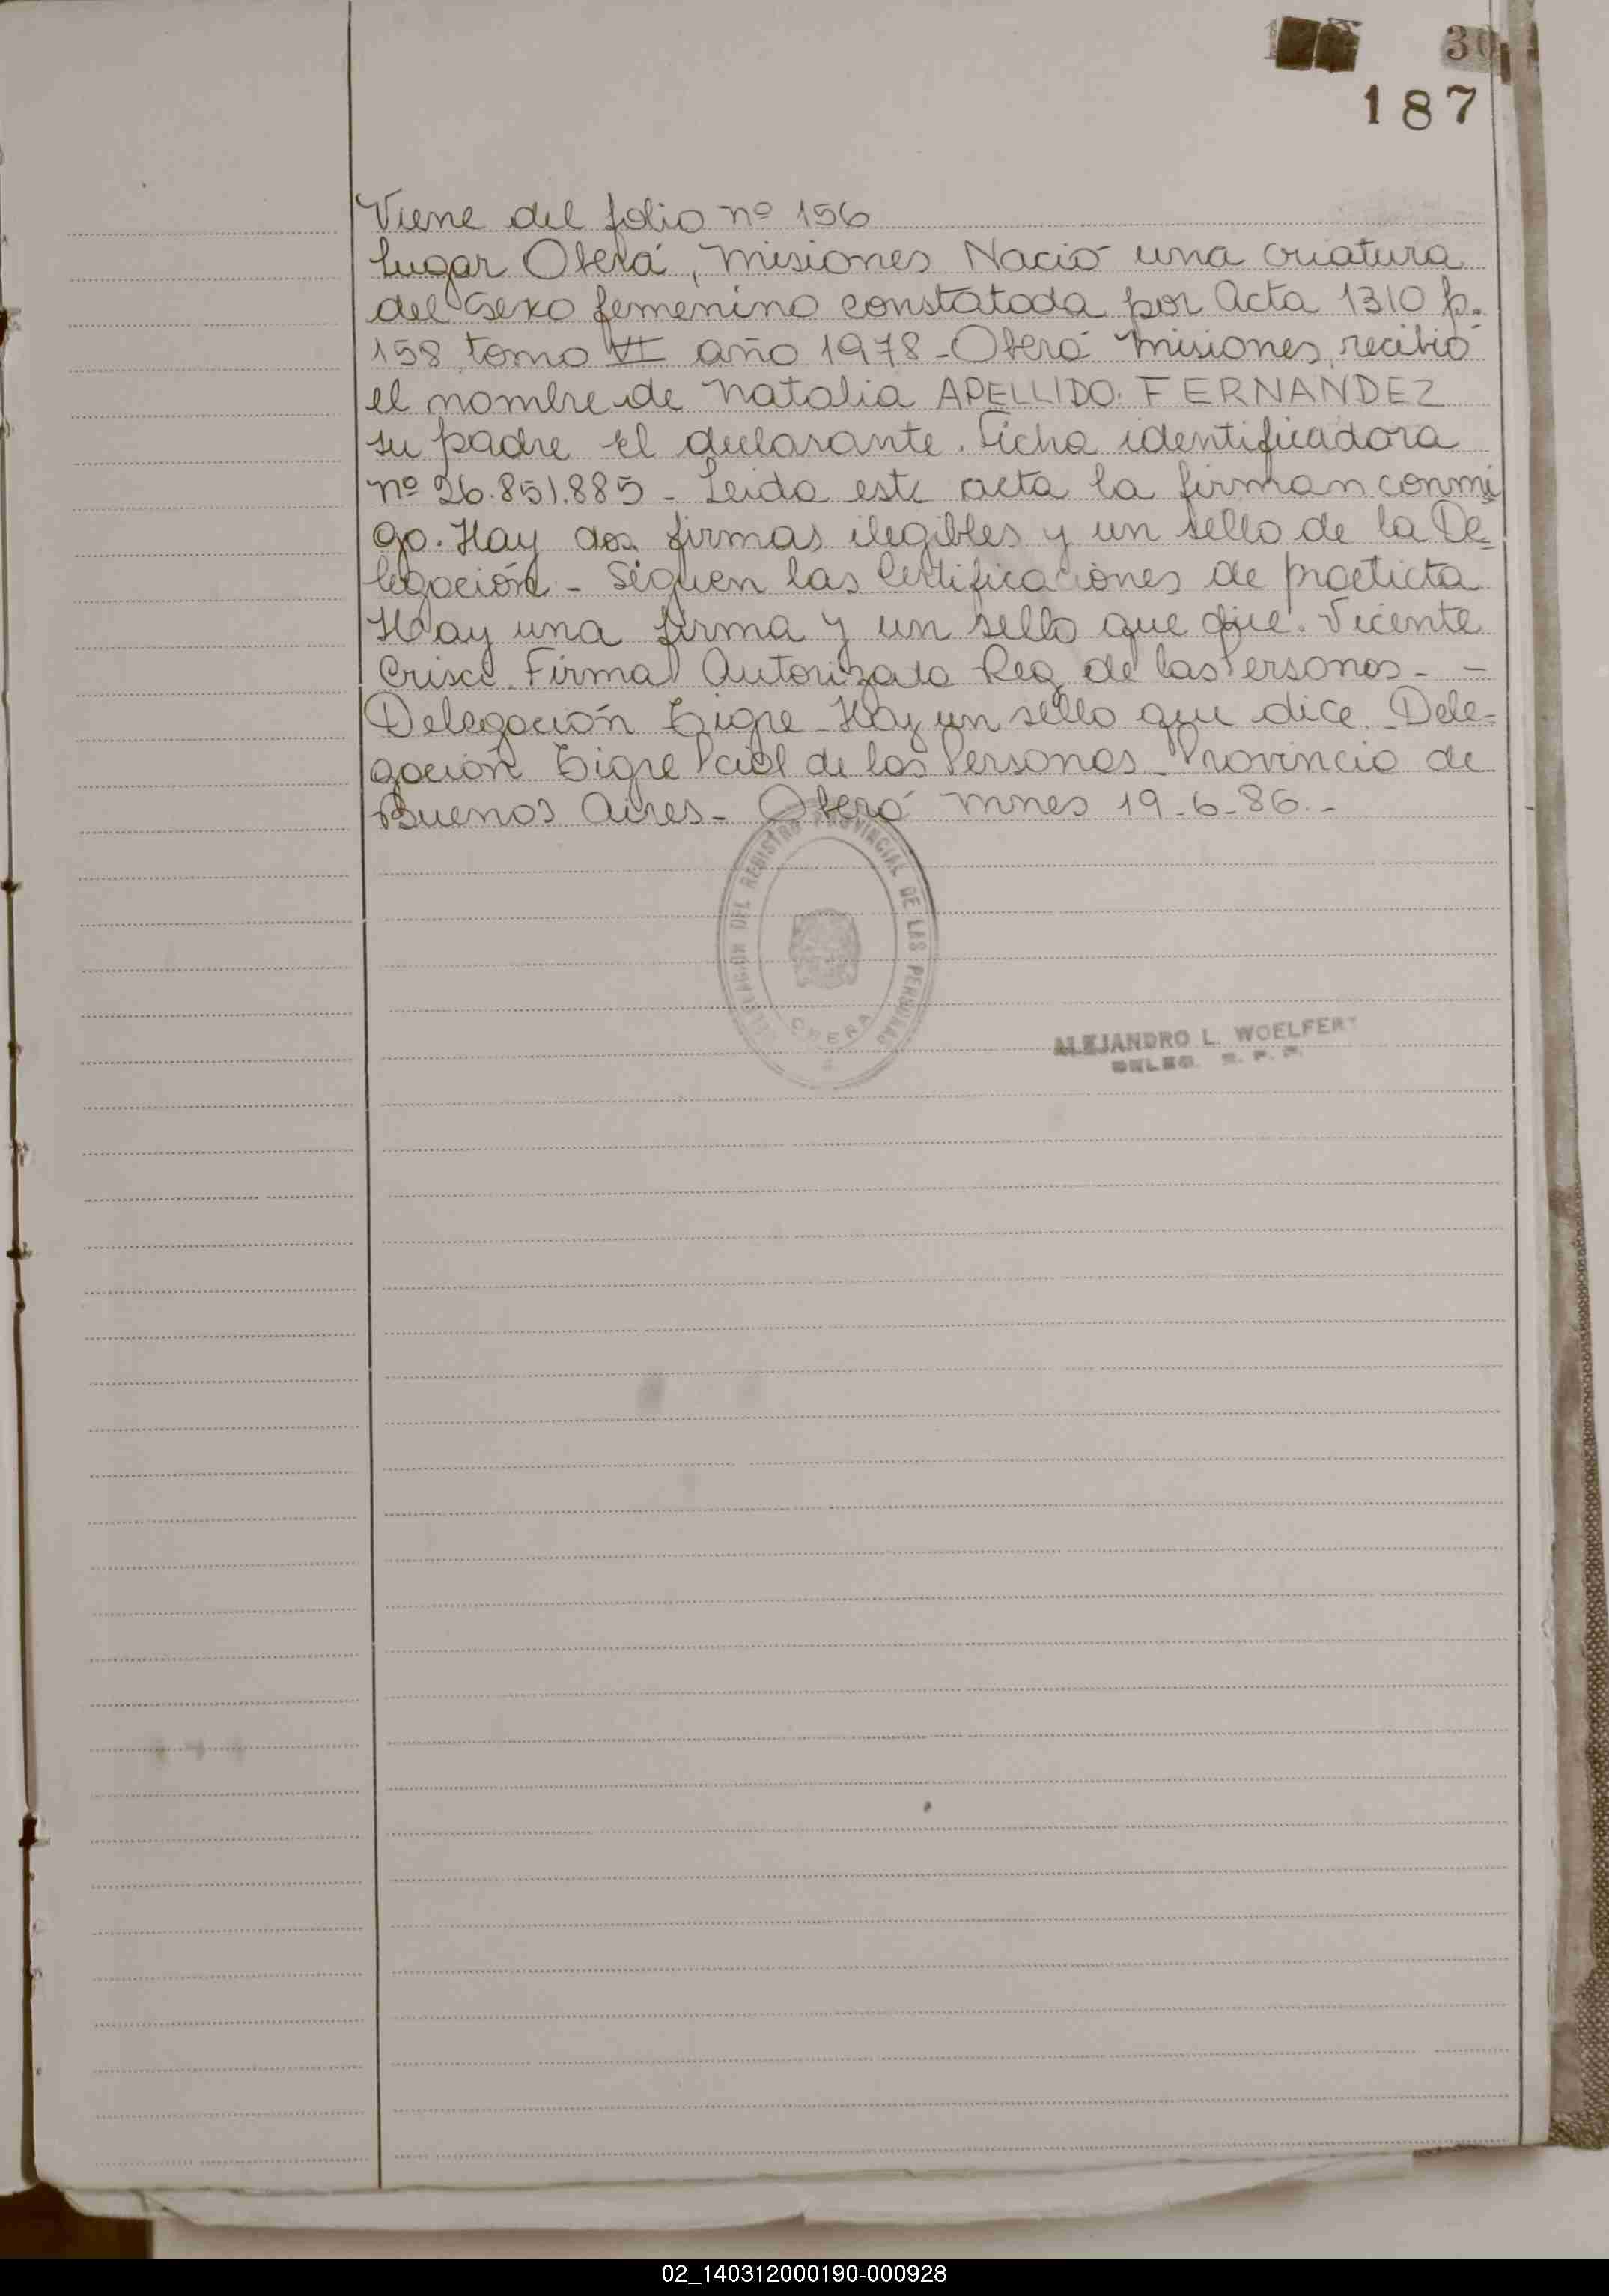 30
187
Viene del folio nº 156
lugar Oberá, Misiones Nació una criatura
del sexo femenino constatada por Acta 1310 p.
158 tomo VI año 1978 - Oberá Misiones, recibió
el nombre de Natalia APELLIDO. FERNANDEZ
su padre el declarante. Ficha identificadora
nº 26.851.885 - Leida este acta la firman conmi
go. Hay dos firmas ilegibles y un sello de la De=
legación - Siguen las Certificaciones de practicta
Hay una firma y un sello que dice. Vicente
Crisci. Firma Autorizada Reg de las Personas - -
Delegación Tigre - Hay un sello que dice. Dele=
gación Tigre Pcial de las Personas - Provincia de
Buenos Aires - Oberá Mnes 19-6-86.-
DELEGACION DEL REGISTRO PROVINCIAL DE LAS PERSONAS
OBERA
ALEJANDRO L. WOELFERT
DELEG. R. P. P.
02_140312000190-000928